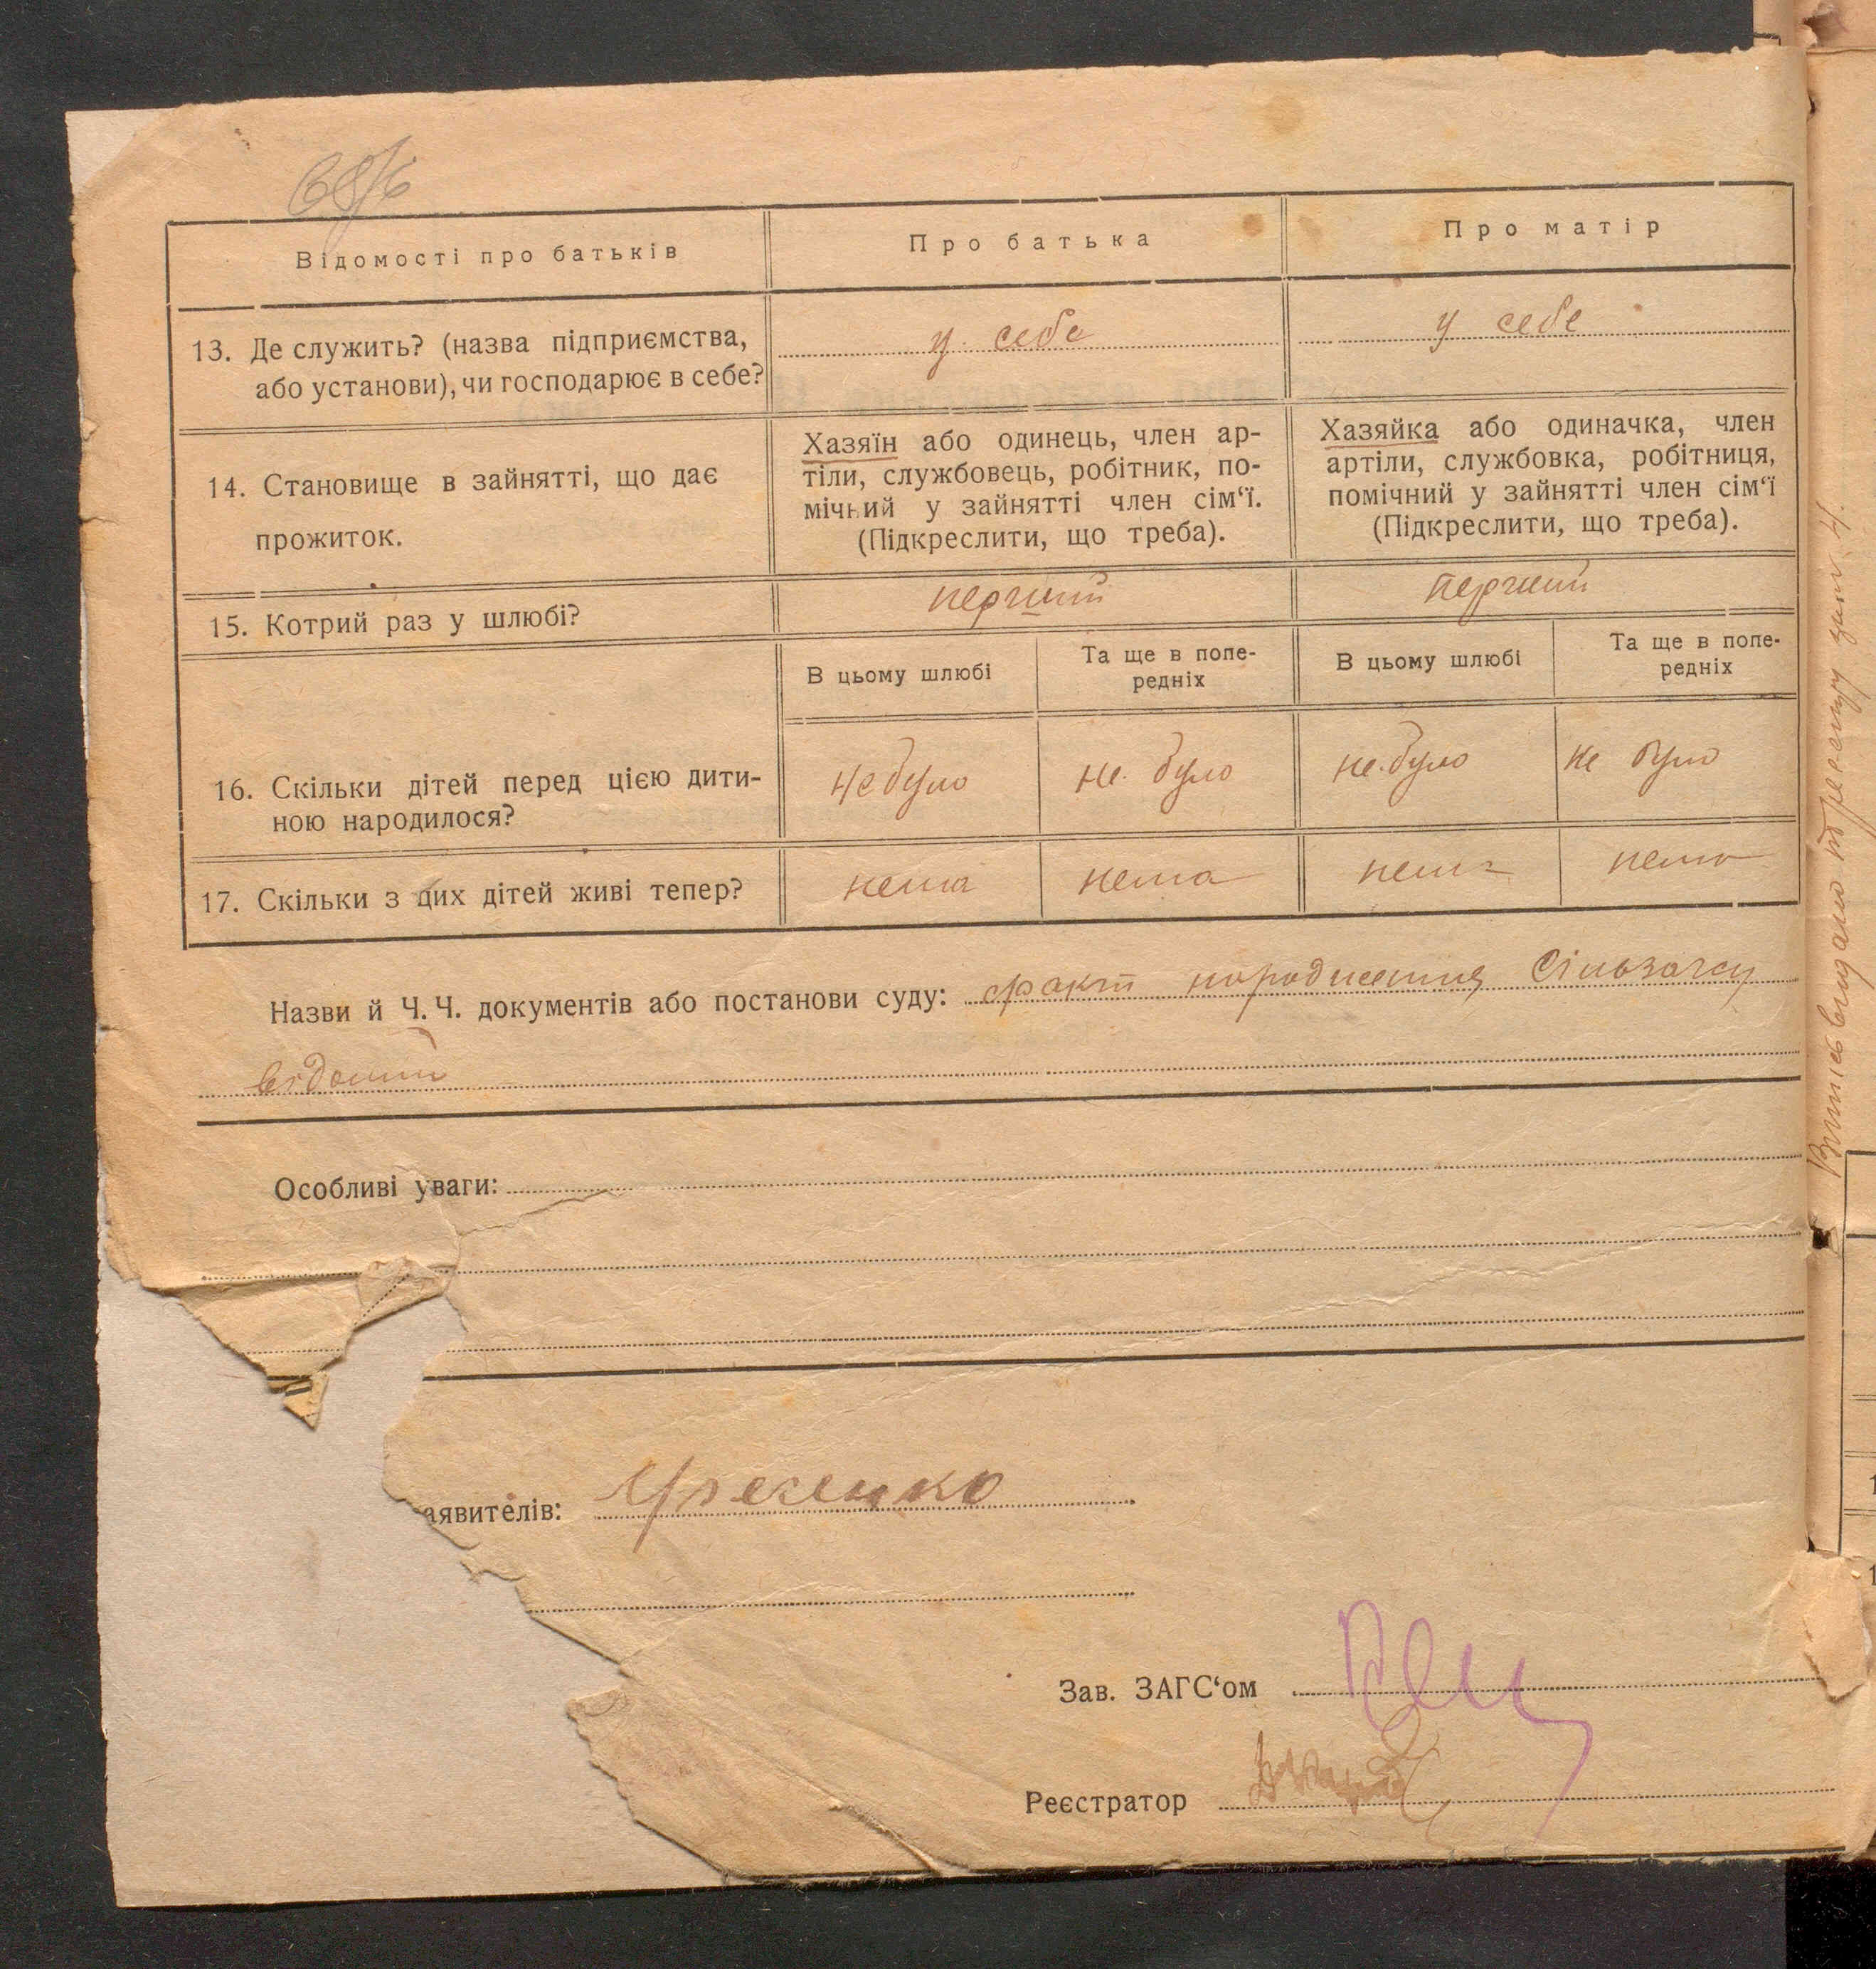 Відомості про батьків
Про батька
Про матір
13. Де служить? (назва підприємства,
або установи), чи господарює в себе?
у себе
у себе
14. Становище в зайнятті, що дає
прожиток.
Хазяїн або одинець, член ар-
тіли, службовець, робітник, по-
мічний у зайнятті член сім‘ї.
(Підкреслити, що треба).
Хазяйка або одиначка, член
артіли, службовка, робітниця,
помічний у зайнятті член сім‘ї
(Підкреслити, що треба).
15. Котрий раз у шлюбі?
перший
перший
В цьому шлюбі
Та ще в попе-
редніх
В цьому шлюбі
Та ще в попе-
редніх
16. Скільки дітей перед цією дити-
ною народилося?
не було
не було
не було
не було
17. Скільки з цих дітей живі тепер?
нема
нема
нема
нема
Назви й Ч. Ч. документів або постанови суду: факт народження Сільзагсу
відомий
Особливі уваги:
аявителів:
Зав. ЗАГС‘ом
Реєстратор